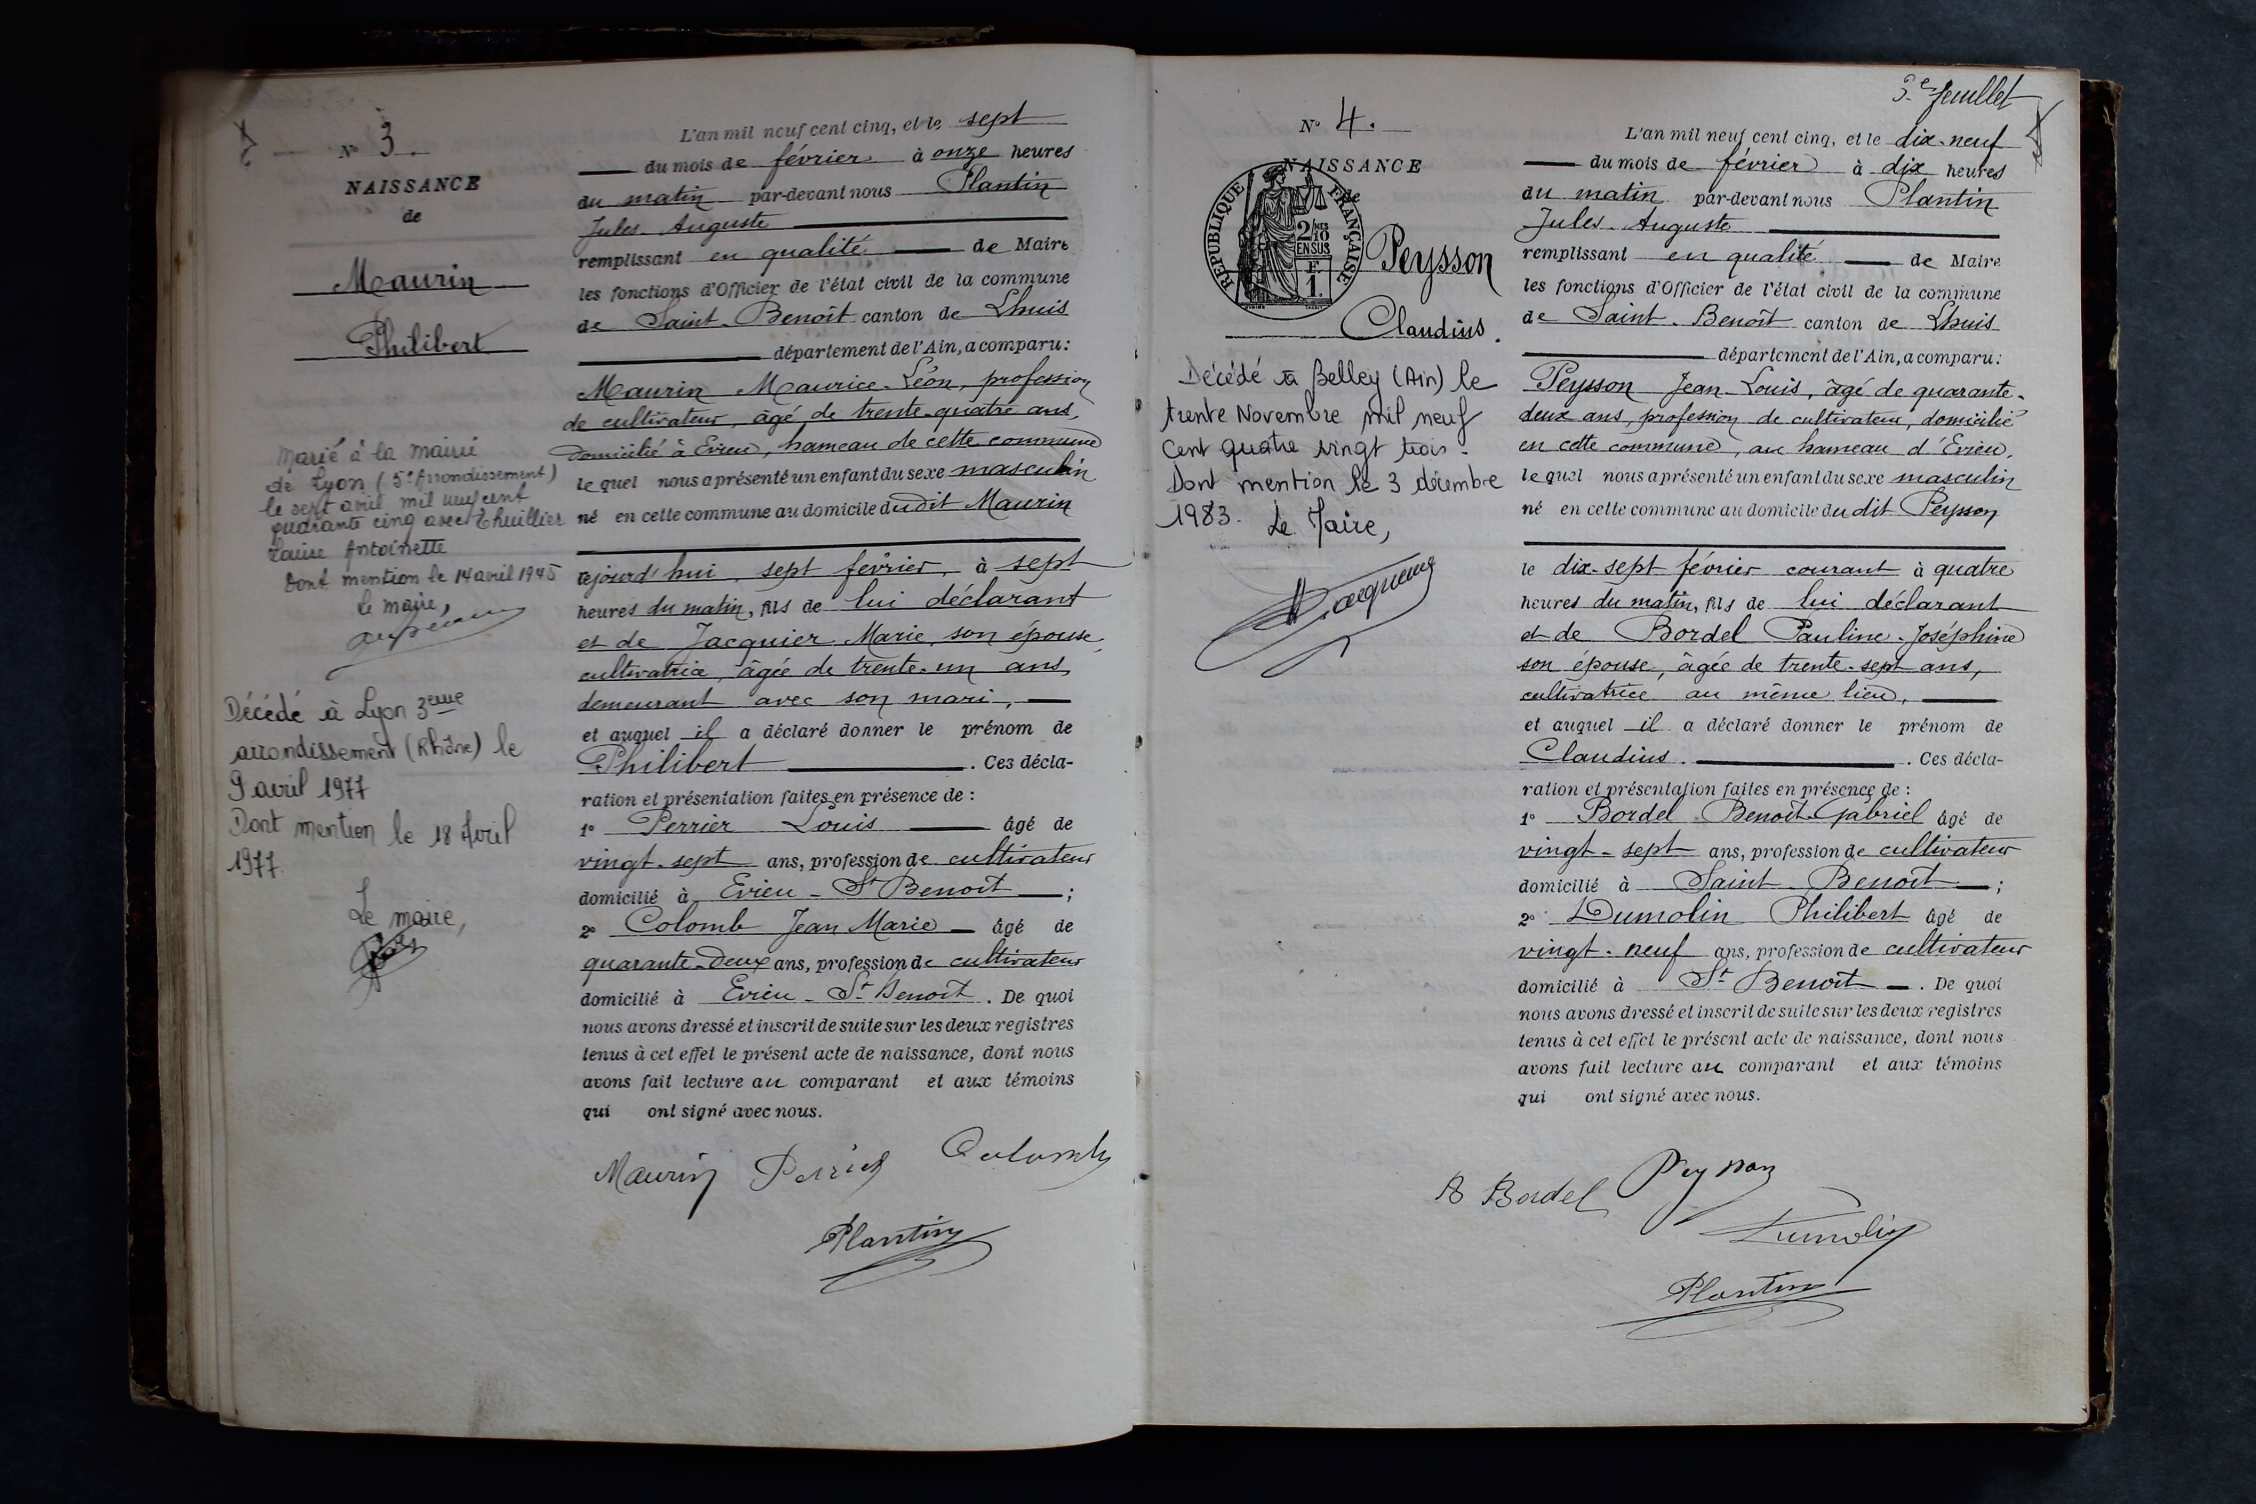 N° 3.
NAISSANCE
de
Maurin
Philibert
Marié à la mairie
de Lyon (5e Arrondissement)
le sept avril mil neuf cent
quarante cinq avec Thuillier
Louise Antoinette
Dont mention le 14 avril 1945
Le maire,
Décédé à Lyon 3ème
arrondissement (Rhône) le
9 avril 1977
Dont mention le 18 Avril
1977.
Le maire,
L'an mil neuf cent cinq, et le sept
du mois de février à onze heures
du matin par-devant nous Plantin
Jules Auguste
remplissant en qualité de Maire
les fonctions d'Officier de l'état civil de la commune
de Saint-Benoît canton de Lhuis
département de l'Ain, a comparu:
Maurin Maurice-Léon, profession
de cultivateur, âgé de trente-quatre ans,
domicilié à Evieu, hameau de cette commune
lequel nous a présenté un enfant du sexe masculin
né en cette commune au domicile dudit Maurin
cejourd'hui, sept février, à sept
heures du matin, fils de lui déclarant
et de Jacquier Marie, son épouse,
cultivatrice, âgée de trente-un ans,
demeurant avec son mari,
et auquel il a déclaré donner le prénom de
Philibert. Ces décla-
ration et présentation faites en présence de:
1° Perrier Louis âgé de
vingt-sept ans, profession de cultivateur
domicilié à Evieu-St Benoît;
2° Colomb Jean Marie âgé de
quarante-deux ans, profession de cultivateur
domicilié à Evieu-St Benoît. De quoi
nous avons dressé et inscrit de suite sur les deux registres
tenus à cet effet le présent acte de naissance, dont nous
avons fait lecture au comparant et aux témoins
qui ont signé avec nous.
Maurin Perrier Colomb
Plantin
3e feuillet
N° 4.
NAISSANCE
de
REPUBLIQUE FRANÇAISE
2/10
EN SUS
F.
1.
Peysson
Claudius.
Décédé à Belley (Ain) le
trente Novembre mil neuf
cent quatre vingt trois.
Dont mention le 3 décembre
1983. Le Maire,
L'an mil neuf cent cinq, et le dix-neuf
du mois de février à dix heures
du matin par-devant nous Plantin
Jules-Auguste
remplissant en qualité de Maire
les fonctions d'Officier de l'état civil de la commune
de Saint-Benoît canton de Lhuis
département de l'Ain, a comparu:
Peysson Jean-Louis, âgé de quarante-
deux ans, profession de cultivateur, domicilié
en cette commune, au hameau d'Evieu,
lequel nous a présenté un enfant du sexe masculin
né en cette commune au domicile du dit Peysson
le dix-sept février courant à quatre
heures du matin, fils de lui déclarant
et de Bordel Pauline-Joséphine
son épouse, âgée de trente-sept ans,
cultivatrice au même lieu,
et auquel il a déclaré donner le prénom de
Claudius. Ces décla-
ration et présentation faites en présence de:
1° Bordel Benoît-Gabriel âgé de
vingt-sept ans, profession de cultivateur
domicilié à Saint-Benoît;
2° Dumolin Philibert âgé de
vingt-neuf ans, profession de cultivateur
domicilié à St-Benoît. De quoi
nous avons dressé et inscrit de suite sur les deux registres
tenus à cet effet le présent acte de naissance, dont nous
avons fait lecture au comparant et aux témoins
qui ont signé avec nous.
B Bordel Peysson
Dumolin
Plantin